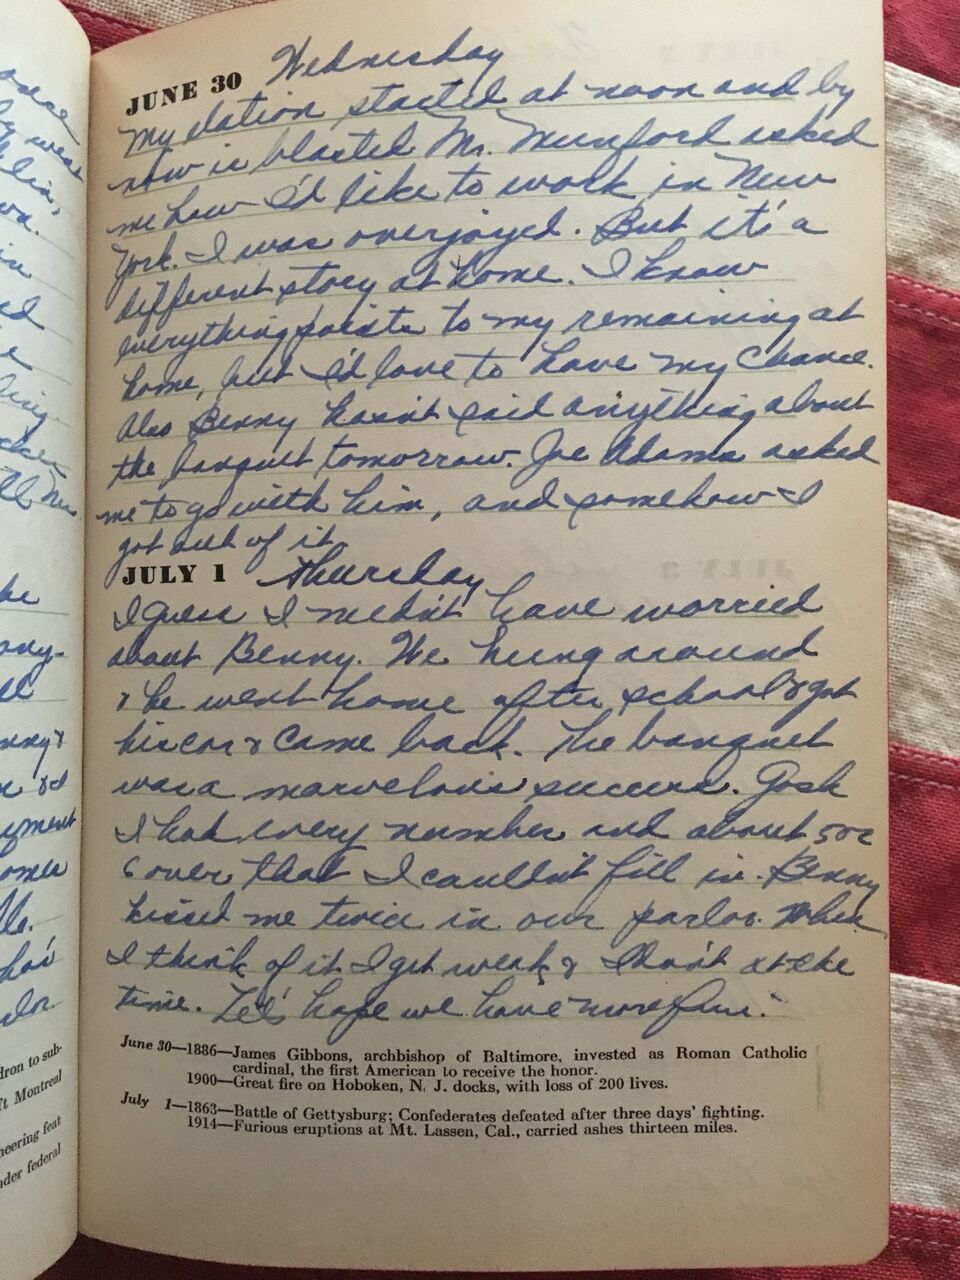 once
JUNE 30 Wednesday
My elation started at noon and by
now is blasted Mr. Munford asked
me how I'd like to work in New
York. I was overjoyed. But it's a
different story at home. I know
everything points to my remaining at
home, but I'd love to have my chance.
Also Benny hasn't said anything about
the banquet tomorrow. Joe Adams asked
me to go with him, and somehow I
got out of it
JULY 1 Thursday
I guess I needn't have worried
about Benny. We hung around
& he went home after school & got
his car & came back. The banquet
was a marvelous success. Gosh
I had every number and about 5 or
6 over that I couldn't fill in. Benny
kissed me twice in our parlor. When
I think of it I get weak & I don't at the
time. Let's hope we have more fun.
June 30—1886—James Gibbons, archbishop of Baltimore, invested as Roman Catholic
cardinal, the first American to receive the honor.
1900—Great fire on Hoboken, N. J. docks, with loss of 200 lives.
July 1—1863—Battle of Gettysburg; Confederates defeated after three days' fighting.
1914—Furious eruptions at Mt. Lassen, Cal., carried ashes thirteen miles.
dron to sub-
Montreal
neering feat
nder federal